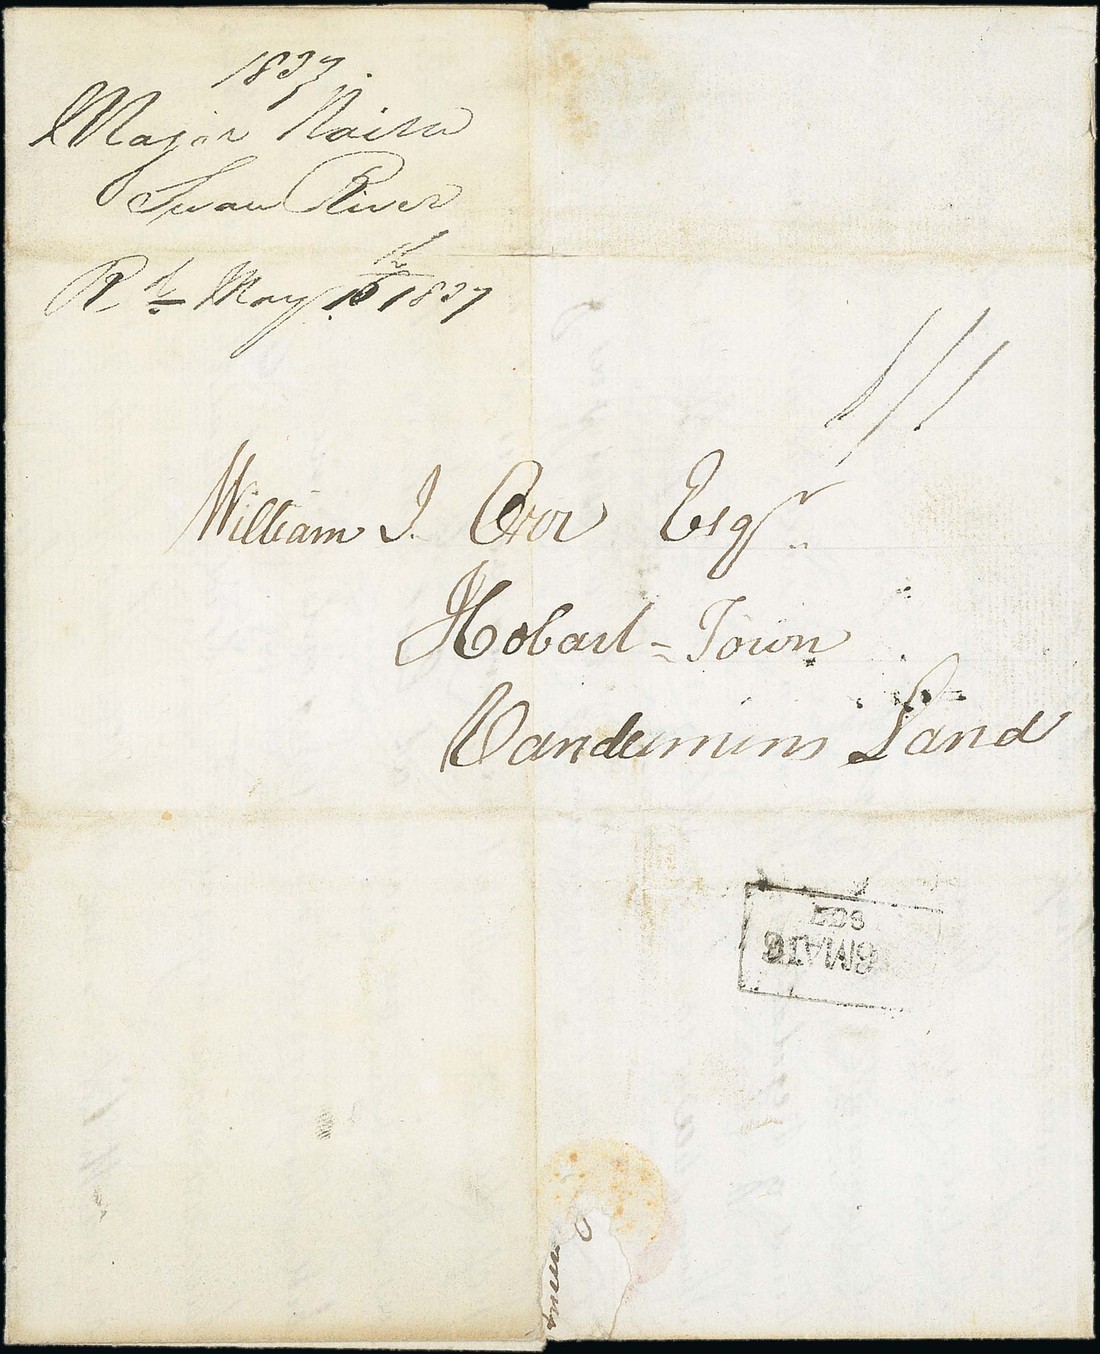 1837
Major Nairn
Swan River
Rd May 16th 1837
William J. Orr Esqr
Hobart-Town
Vandemins Land